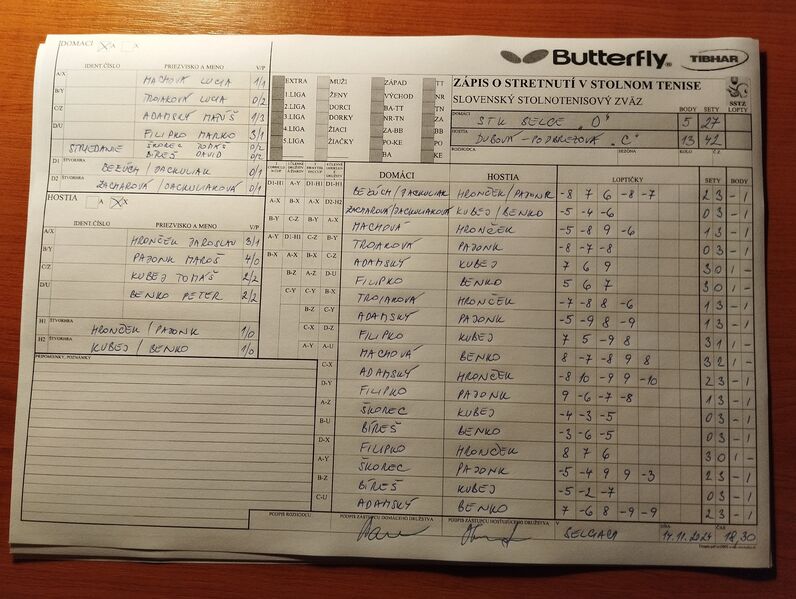 Butterfly
TIBHAR
ZÁPIS O STRETNUTÍ V STOLNOM TENISE
SLOVENSKÝ STOLNOTENISOVÝ ZVÄZ
SSTZ
DOMÁCI STK SELCE "D" BODY 5 SETY 27 LOPTY
HOSTIA DUBOVÁ - PODBREZOVÁ "C" 13 42
ROZHODCA SEZÓNA KOLO Č.Z.
EXTRA MUŽI ZÁPAD TT
1.LIGA ŽENY VÝCHOD NR
2.LIGA DORCI BA-TT TN
3.LIGA DORKY NR-TN ZA
4.LIGA ŽIACI ZA-BB BB
5.LIGA ŽIAČKY PO-KE PO
BA KE
DOMÁCI X A
IDENT.ČÍSLO PRIEZVISKO A MENO V/P
A/X MACHOVÁ LUCIA 1/1
B/Y TROJAKOVÁ LUCIA 0/2
C/Z ADAMSKÝ MATÚŠ 1/3
D/U FILIPKO MARKO 3/1
STRIEDANIE ŠKOREC TOMÁŠ 0/2
BÍREŠ DAVID 0/2
D1 ŠTVORHRA BEZÚCH / JACKULIAK 0/1
D2 ŠTVORHRA ZACHAROVÁ / JACKULIAKOVÁ 0/1
HOSTIA A X
IDENT.ČÍSLO PRIEZVISKO A MENO V/P
A/X HRONČEK JAROSLAV 3/1
B/Y PAJONK MAROŠ 4/0
C/Z KUBEJ TOMÁŠ 2/2
D/U BENKO PETER 2/2
H1 ŠTVORHRA HRONČEK / PAJONK 1/0
H2 ŠTVORHRA KUBEJ / BENKO 1/0
PRIPOMIENKY, POZNÁMKY
DOMÁCI HOSTIA LOPTIČKY SETY BODY
BEZÚCH / JACKULIAK HRONČEK / PAJONK -8 7 6 -8 -7 2 3 - 1
ZACHAROVÁ / JACKULIAKOVÁ KUBEJ / BENKO -5 -4 -6 0 3 - 1
MACHOVÁ HRONČEK -5 -8 9 -6 1 3 - 1
TROJAKOVÁ PAJONK -8 -7 -8 0 3 - 1
ADAMSKÝ KUBEJ 7 6 9 3 0 1 -
FILIPKO BENKO 5 6 7 3 0 1 -
TROJAKOVÁ HRONČEK -7 -8 8 -6 1 3 - 1
ADAMSKÝ PAJONK -5 -9 8 -9 1 3 - 1
FILIPKO KUBEJ 7 5 -9 8 3 1 1 -
MACHOVÁ BENKO 8 -7 -8 9 8 3 2 1 -
ADAMSKÝ HRONČEK -8 10 -9 9 -10 2 3 - 1
FILIPKO PAJONK 9 -6 -7 -8 1 3 - 1
ŠKOREC KUBEJ -4 -3 -5 0 3 - 1
BÍREŠ BENKO -3 -6 -5 0 3 - 1
FILIPKO HRONČEK 8 7 6 3 0 1 -
ŠKOREC PAJONK -5 -4 9 9 -3 2 3 - 1
BÍREŠ KUBEJ -5 -2 -7 0 3 - 1
ADAMSKÝ BENKO 7 -6 8 -9 -9 2 3 - 1
PODPIS ROZHODCU PODPIS ZÁSTUPCU DOMÁCEHO DRUŽSTVA PODPIS ZÁSTUPCU HOSŤUJÚCEHO DRUŽSTVA V DŇA ČAS
14.11.2024 18,30